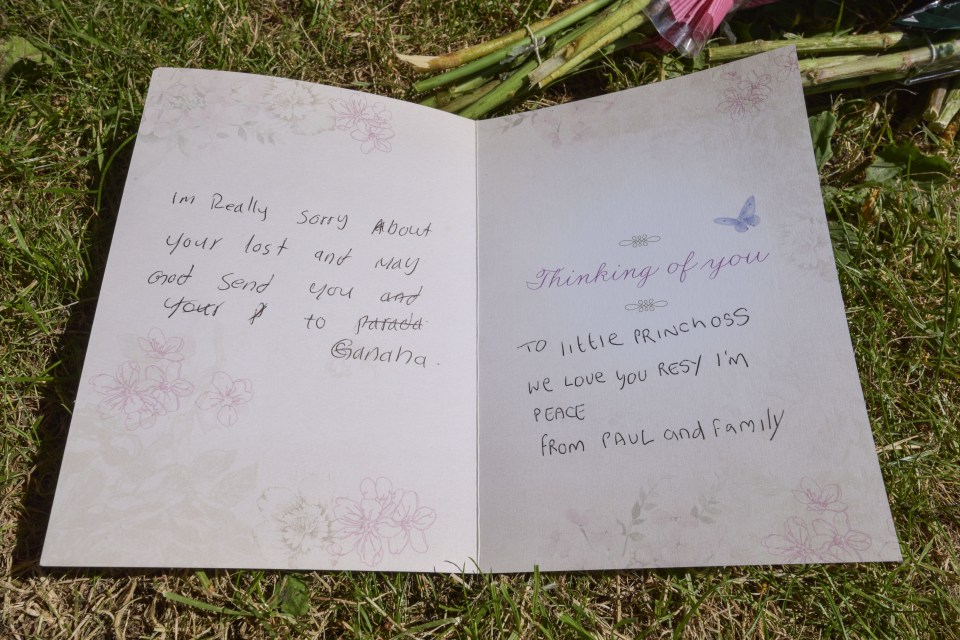 Im Really Sorry About
your lost and May
God Send you and
your to parada
Ganaha.
Thinking of you
To little PRINCHOSS
we Love you RESY I'M
PEACE
from PAUL and Family